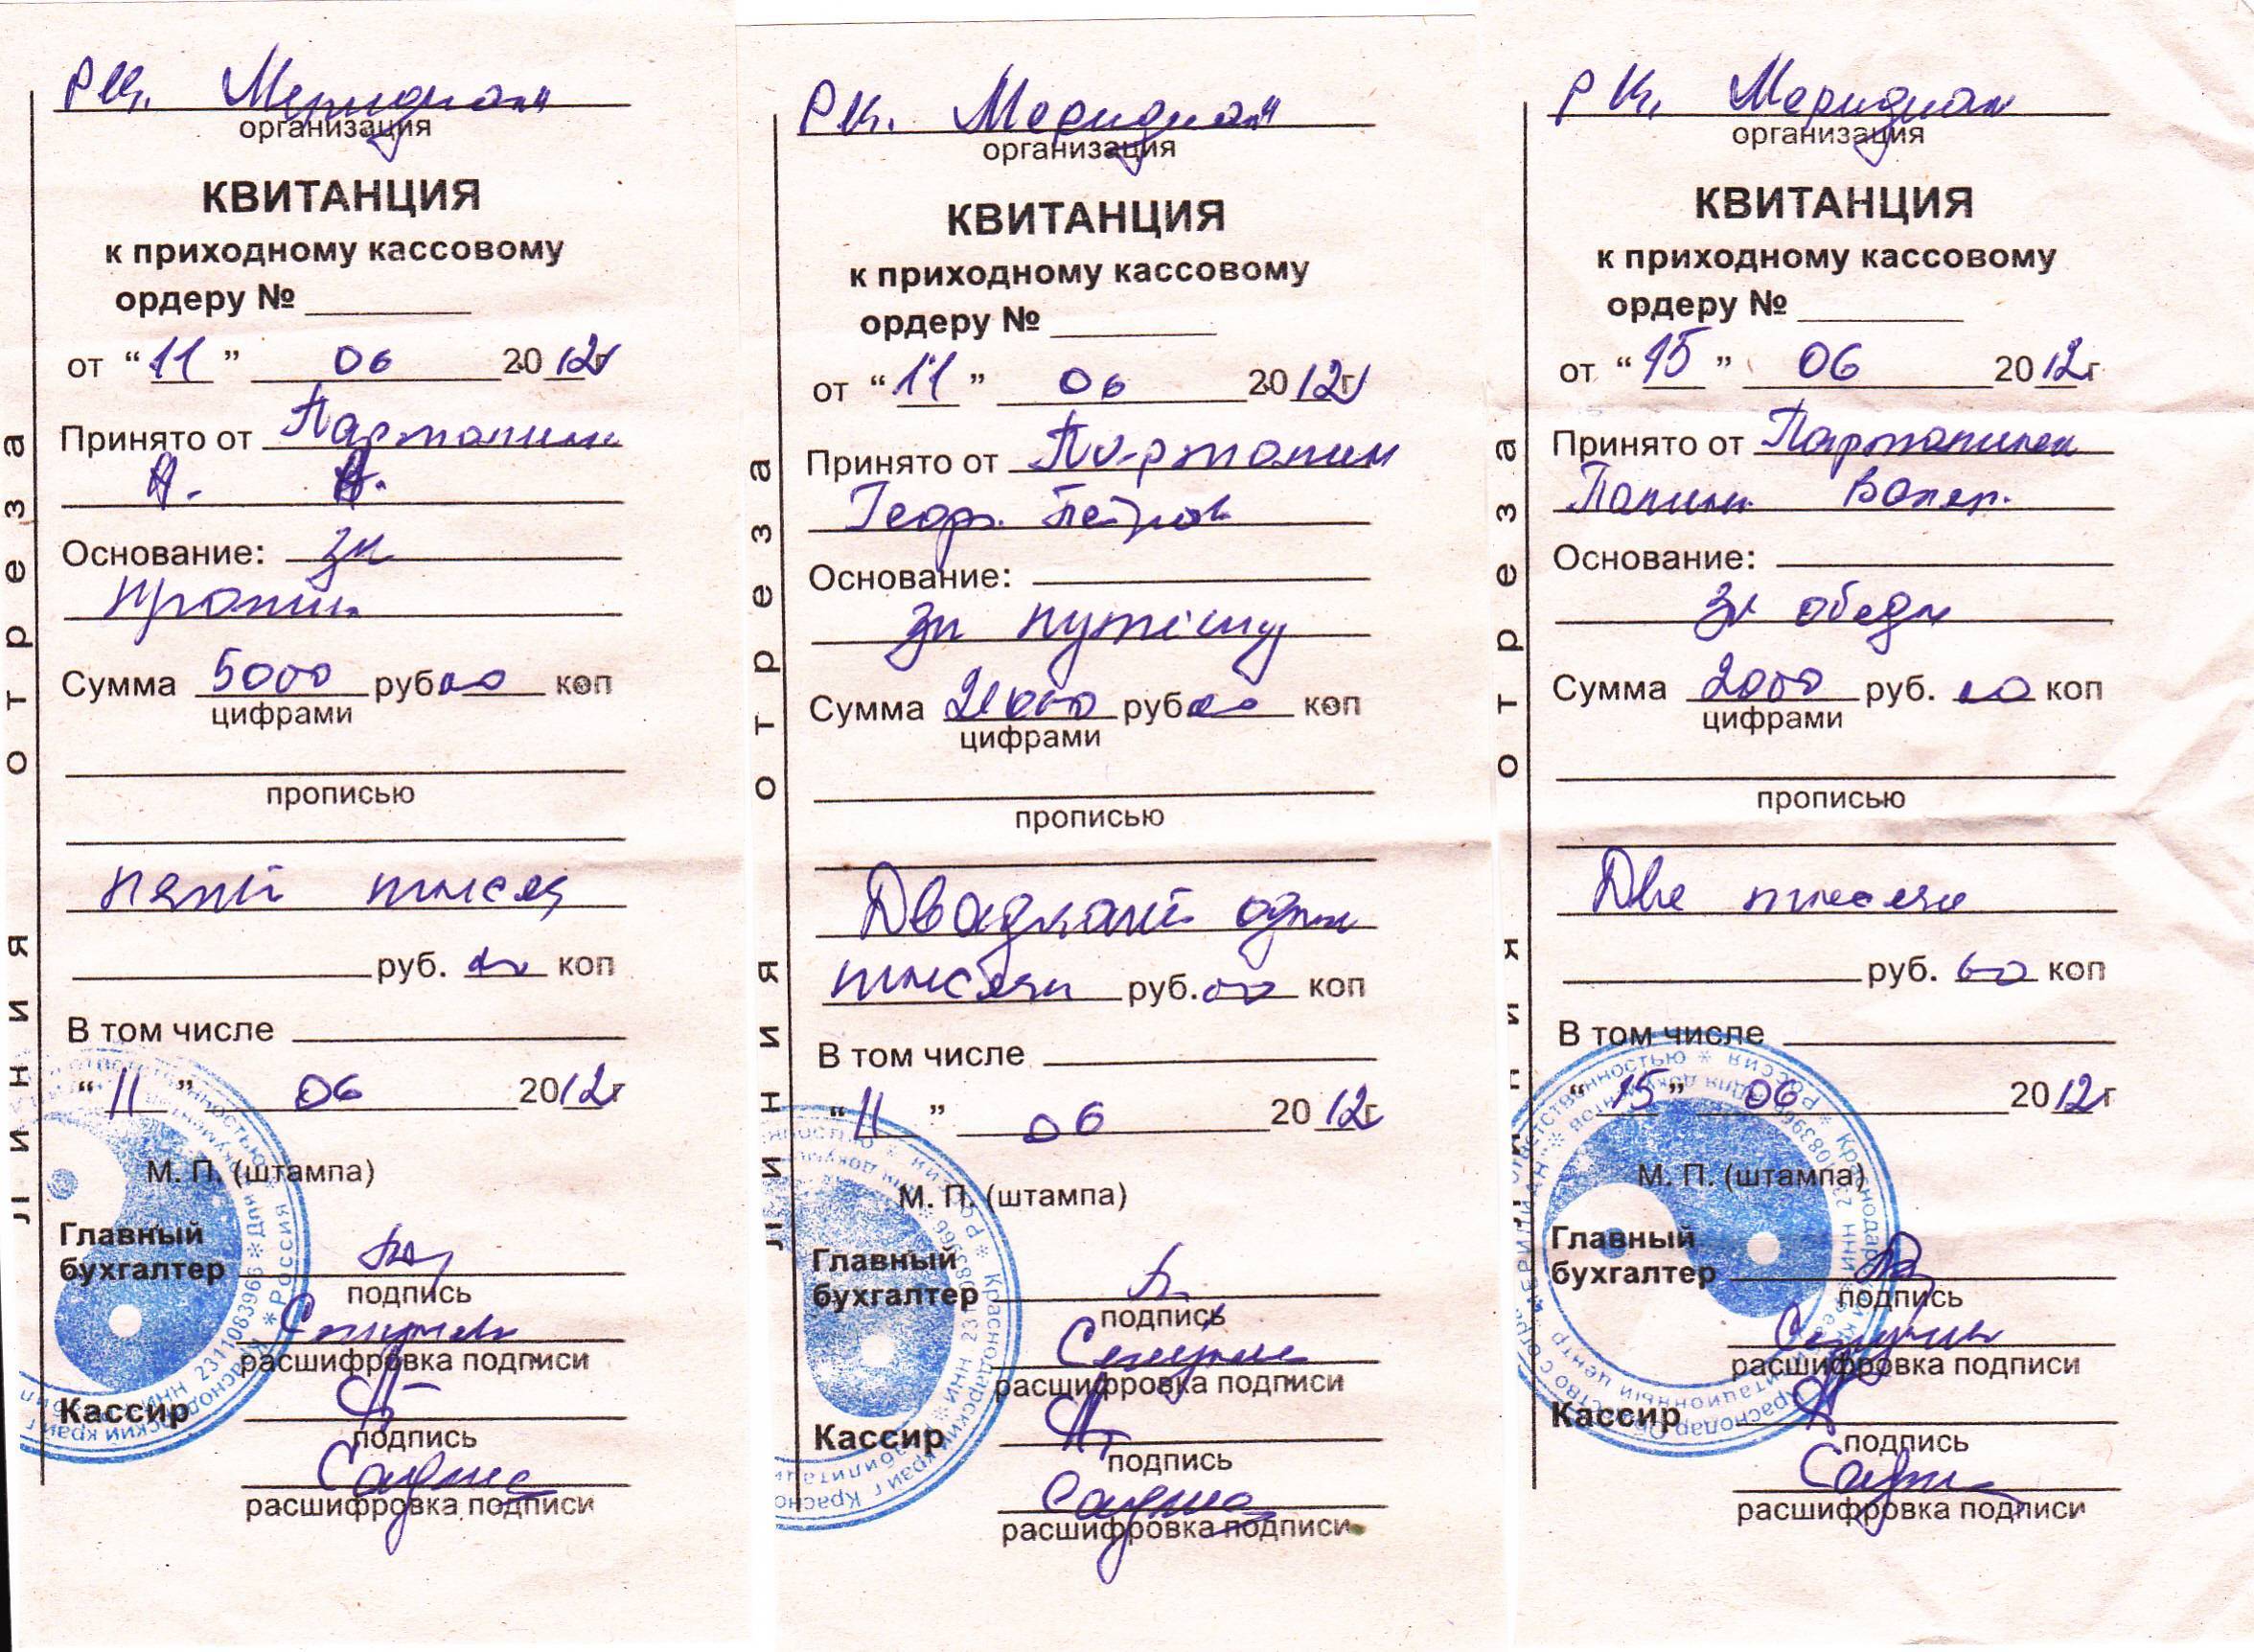 РЦ. Меридиан"
организация
КВИТАНЦИЯ
к приходному кассовому
ордеру №
от “11” 06 2012г
Принято от
А. А.
Основание: за
Сумма 5000 руб 00 коп
цифрами
прописью
пять тысяч
руб. 00 коп
В том числе
“11” 06 2012г
М. П. (штампа)
Главный
бухгалтер
подпись
расшифровка подписи
Кассир
подпись
расшифровка подписи
линия отреза
РЦ. Меридиан"
организация
КВИТАНЦИЯ
к приходному кассовому
ордеру №
от “11” 06 2012г
Принято от
Геор. Петров
Основание:
за путевку
Сумма 21000 руб 00 коп
цифрами
прописью
Двадцать одна
тысяча руб. 00 коп
В том числе
“11” 06 2012г
М. П. (штампа)
Главный
бухгалтер
подпись
расшифровка подписи
Кассир
подпись
расшифровка подписи
линия отреза
РЦ. Меридиан
организация
КВИТАНЦИЯ
к приходному кассовому
ордеру №
от “15” 06 2012г
Принято от
Валер.
Основание:
за обеды
Сумма 2000 руб. 00 коп
цифрами
прописью
Две тысячи
руб. 00 коп
В том числе
“15” 06 2012г
М. П. (штампа)
Главный
бухгалтер
подпись
расшифровка подписи
Кассир
подпись
расшифровка подписи
линия отреза